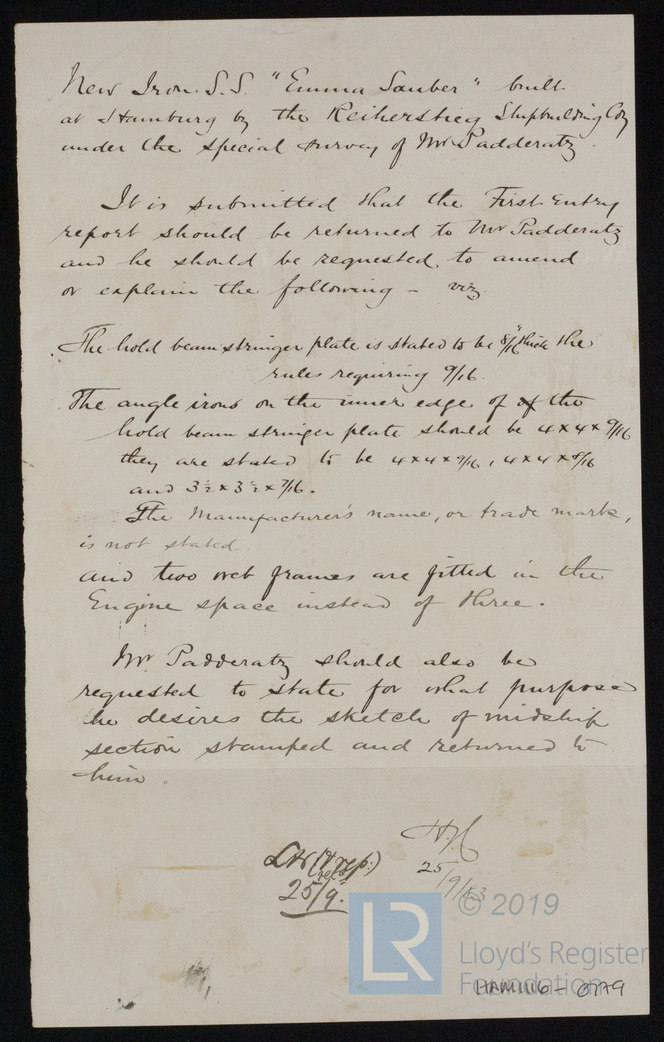 New Iron S.S. "Emma Sauber" built
at Hamburg by the Reiherstieg Shipbuilding Coy
under the special survey of Mr Padderatz.
It is submitted that the First Entry
report should be returned to Mr Padderatz
and he should be requested to amend
or explain the following - viz
The hold beam stringer plate is stated to be 8/16" thick the
rules requiring 9/16.
The angle irons on the inner edge of of the
hold beam stringer plate should be 4 x 4 x 9/16
they are stated to be 4 x 4 x 9/16, 4 x 4 x 8/16
and 3½ x 3½ x 7/16.
The Manufacturer's name, or trade mark,
is not stated
and two web frames are fitted in the
Engine space instead of three.
Mr Padderatz should also be
requested to state for what purpose
he desires the sketch of midship
section stamped and returned to
him.
25
/9/83
25/9.
© 2019
LR
Lloyd's Register
Foundation
HAM1116-0779